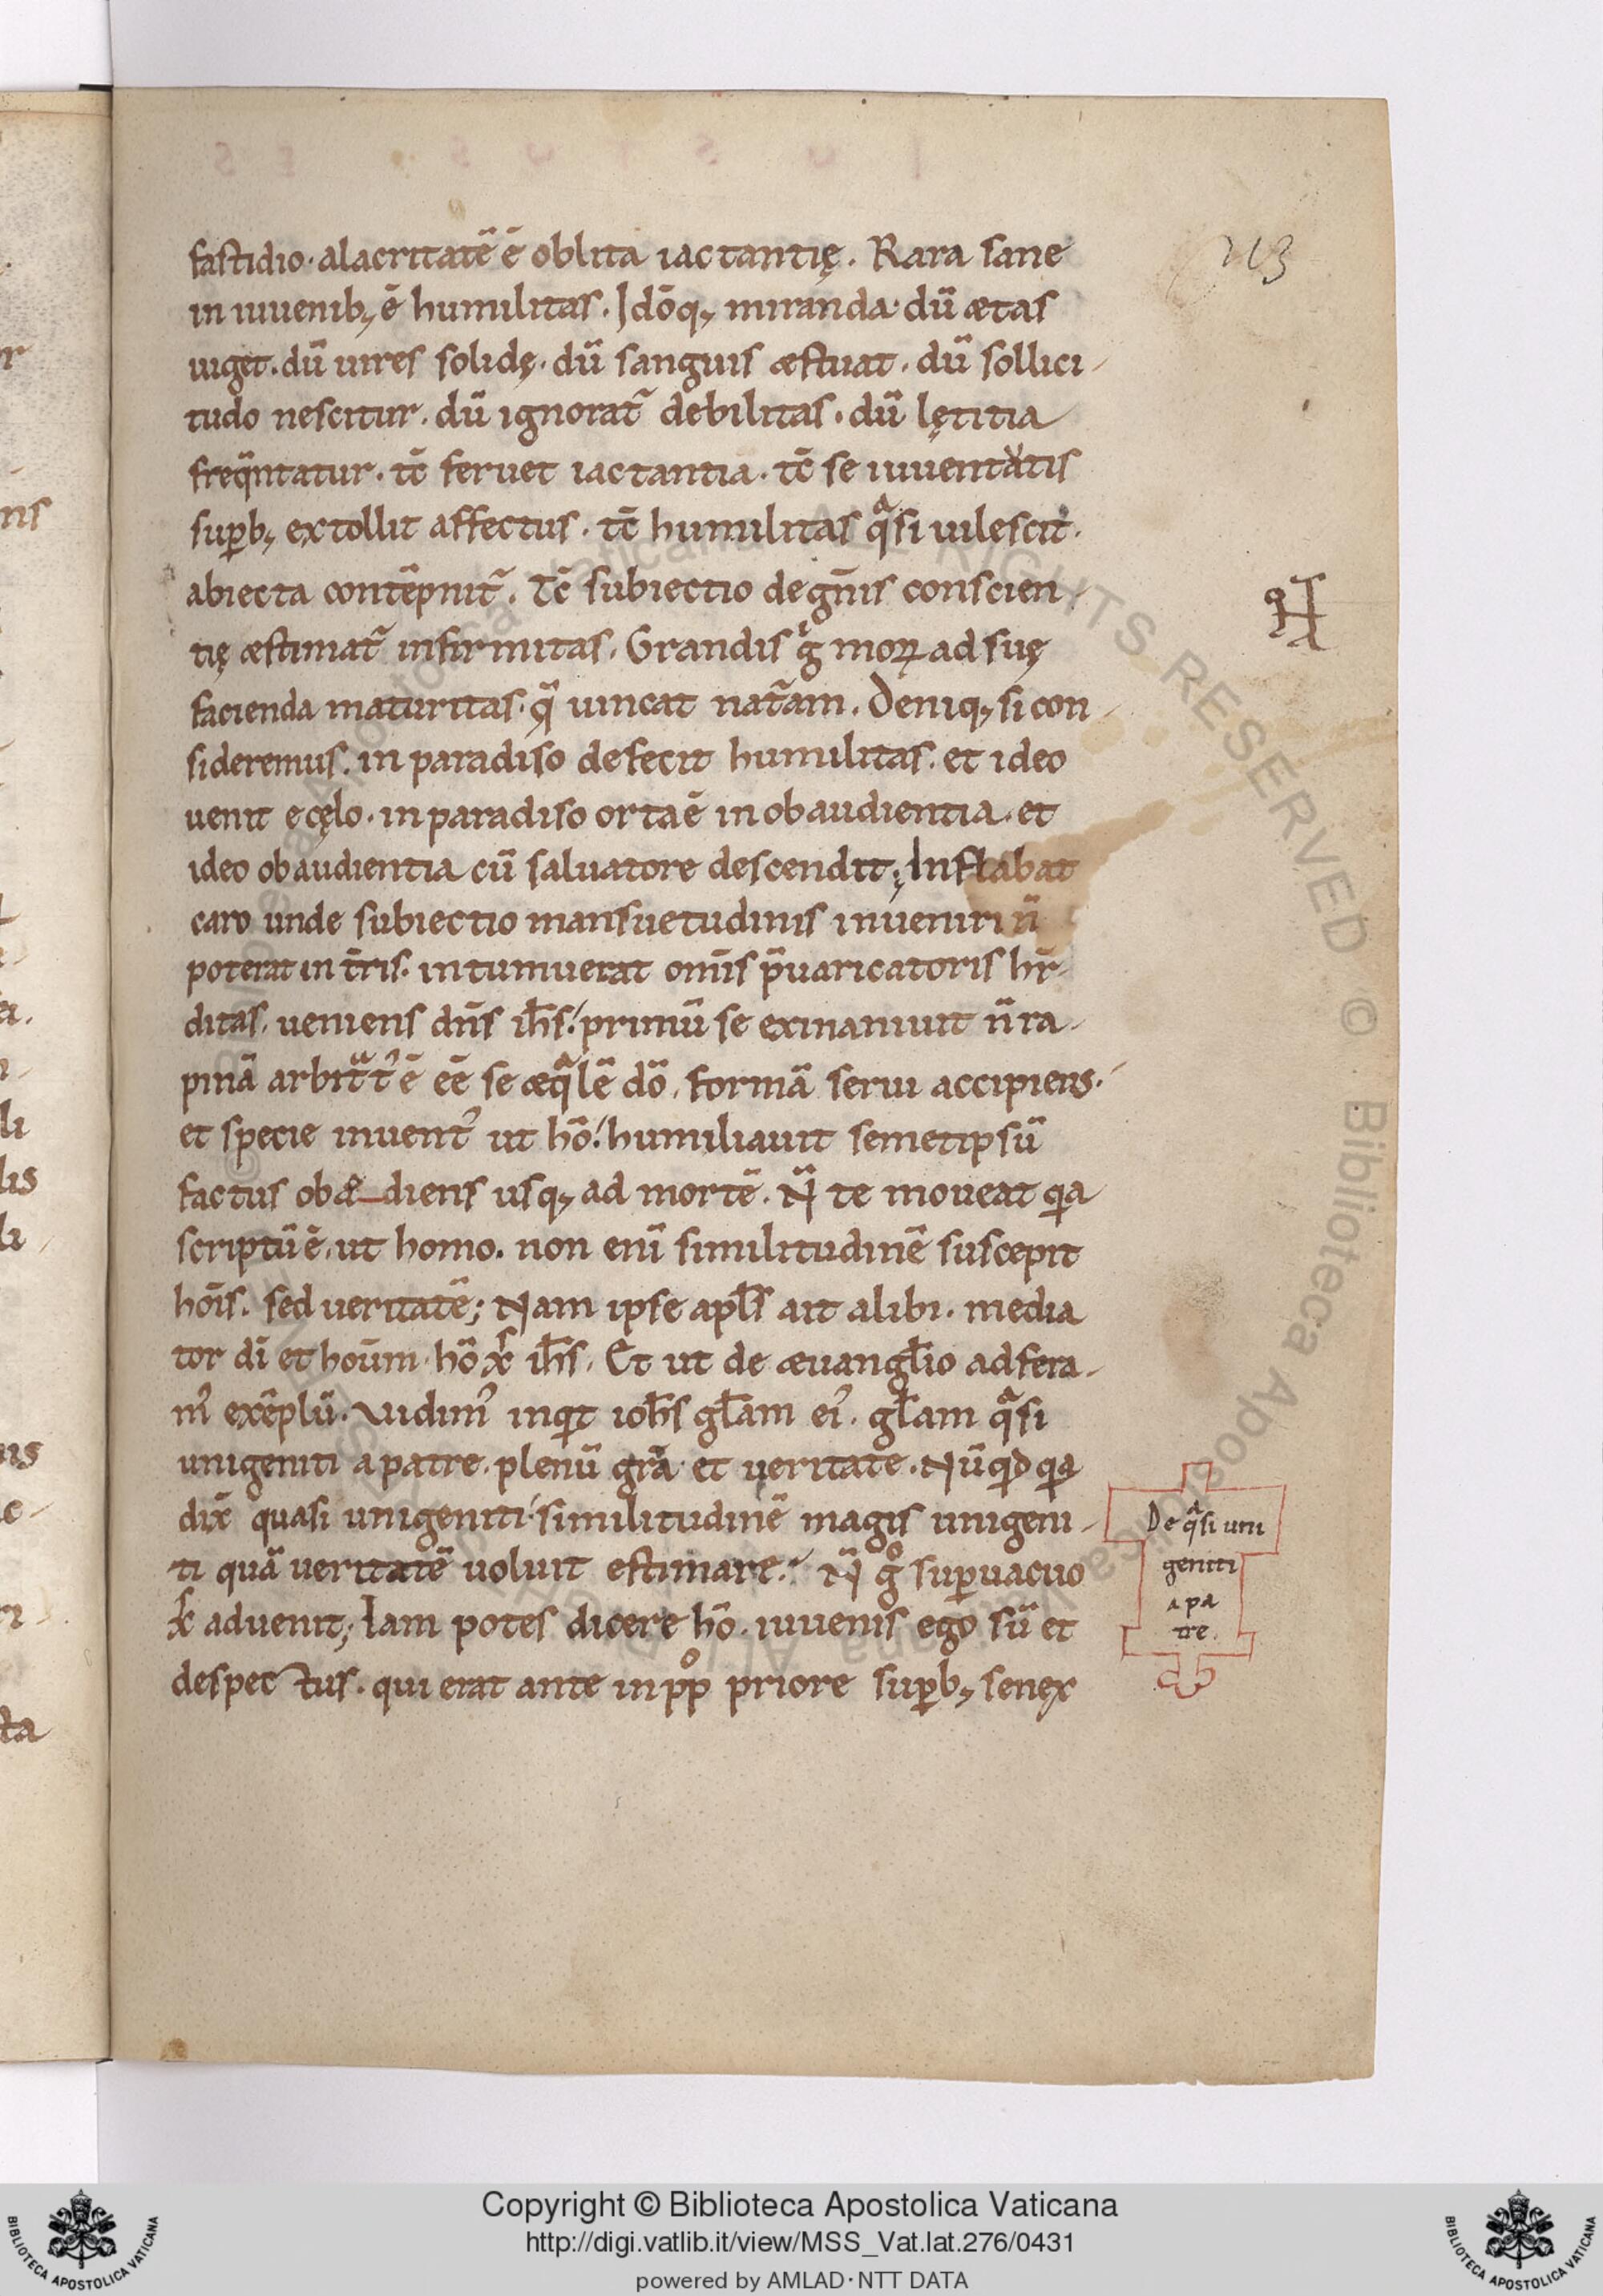 213
fastidio · alacritatē ē oblita iactantię . Rara sane
in iuuenib; ē humilitas . Idōq; miranda · dū ætas
uiget . dū uires solidę · dū sanguis æstuat . dū sollici-
tudo nescitur . dū ignorat᷑ debilitas . dū lętitia
freqͣntatur . tc̄ feruet iactantia . tc̄ se iuuentatis
sup̄b; extollit affectus . tc̄ humilitas qͣsi uilescit .
abiecta contēpnit᷑ . Tc̄ subiectio degn̄is conscien-
tię æstimat᷑ infirmitas . Grandis g̊ moꝝ ad suę
facienda maturitas . qͣ uincat nat᷑am . Deniq; si con-
sideremus . in paradiso defecit humilitas . et ideo
uenit e cęlo . in paradiso orta ē inobaudientia . et
ideo obaudientia cū saluatore descendit ; Inflabat
caro unde subiectio mansuetudinis inueniri n̄
poterat in t̄ris . intumuerat om̄is p̄uaricatoris hr̄-
ditas . ueniens dn̄s ih̄s · primū se exinaniuit n̄ ra-
pinā arbitͣt᾿ ē ēē se æqͣlē dō . formā serui accipiens .
et specie inuent᾿ ut hō · humiliauit semetipsū
factus obædiens usq; ad mortē . N̄ te moueat qa
scriptū ē . ut homo . non enī similitudinē suscepit
hōis . sed ueritatē ; Nam ipse apl̄s ait alibi . media
tor dī et hoūm · hō xp̄s ih̄s . Et ut de æuangl̄io adfera-
m᾿ exēplū . Vidim᾿ inqt ioh̄s gl̄am ei᾿ . gl̄am qͣsi
unigeniti a patre . plenū grā et ueritate . Nūqd qa
dix̄ quasi unigeniti · similitudinē magis unigeni-
ti quā ueritatē uoluit estimare . N̄ g̊ sup̄uacuo
xp̄s aduenit ; Iam potes dicere hō . iuuenis ego sū et
despectus . qui erat ante in pp̊ priore sup̄b; senex
De qͣsi uni
geniti
a pa
tre .
Copyright © Biblioteca Apostolica Vaticana
http://digi.vatlib.it/view/MSS_Vat.lat.276/0431
powered by AMLAD·NTT DATA
BIBLIOTECA APOSTOLICA VATICANA
BIBLIOTECA APOSTOLICA VATICANA